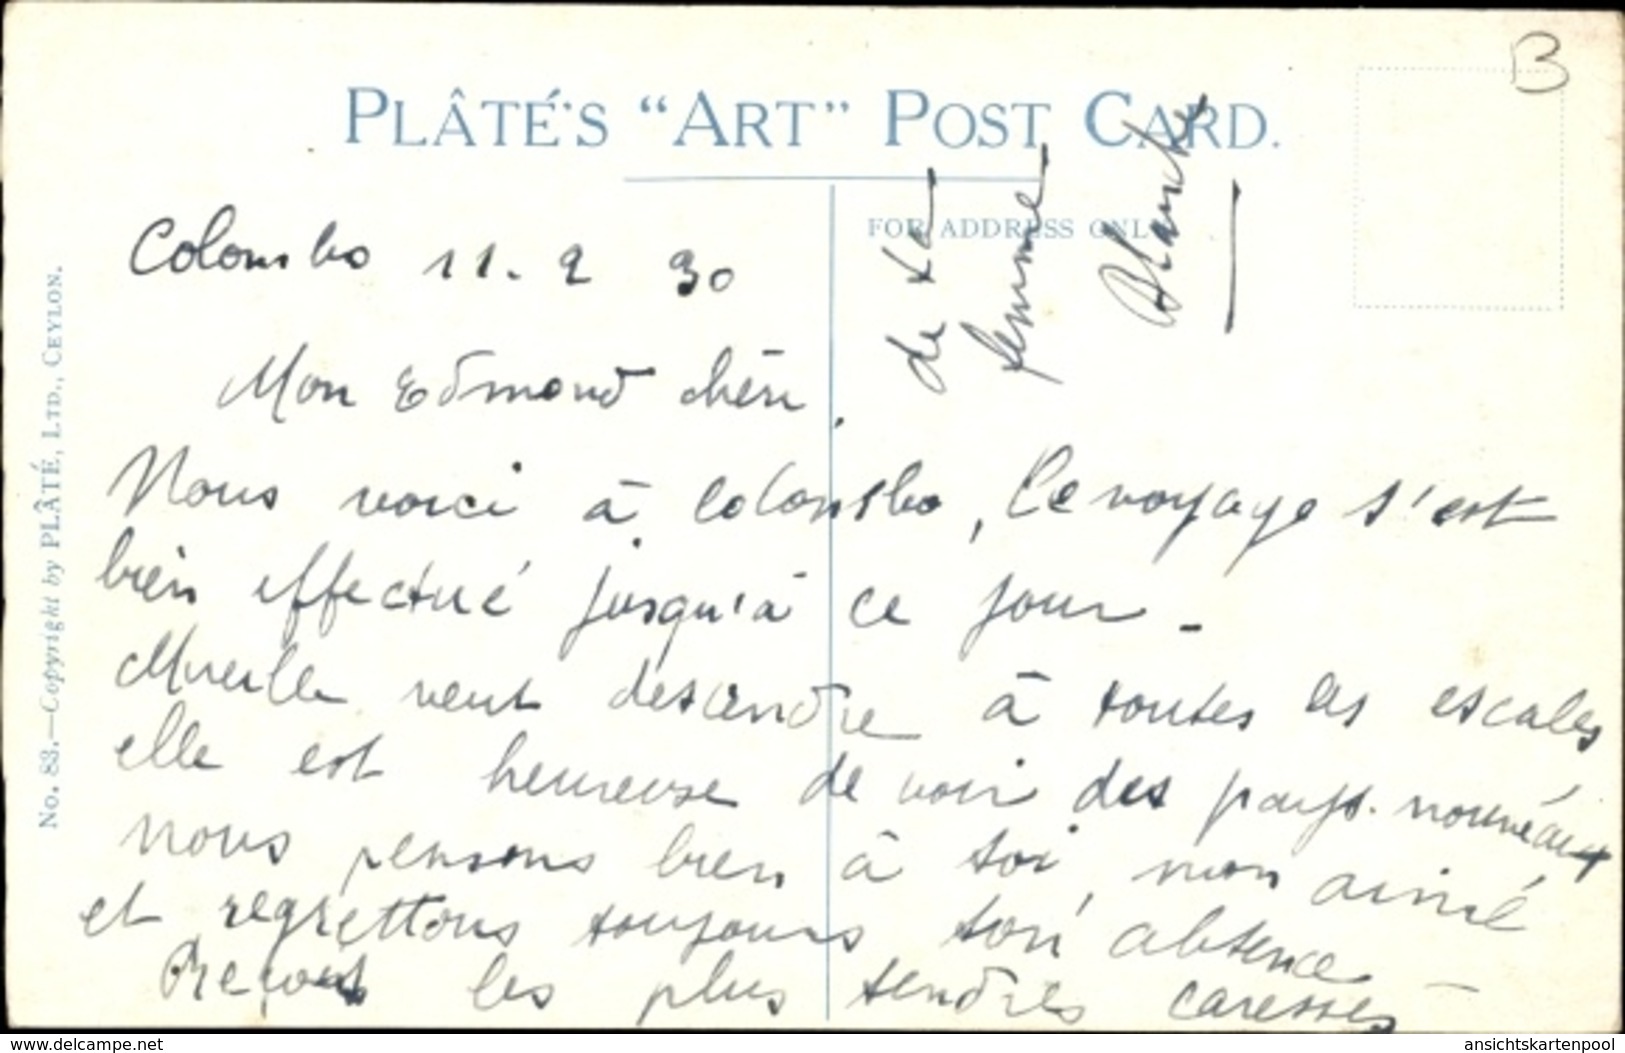 PLÂTÉ'S "ART" POST CARD.
FOR ADDRESS ONLY
No. 83.—Copyright by PLÂTÉ, LTD., CEYLON.
B
Colombo 11. 2 30
Mon Edmond chéri,
Nous voici à Colombo, le voyage s'est
bien effectué jusqu'à ce jour -
Mireille veut descendre à toutes les escales
elle est heureuse de voir des pays nouveaux
nous pensons bien à toi, mon aimé
et regrettons toujours ton absence -
Reçois les plus tendres caresses
de ta
femme
Blanche
www.ansichtskartenpool.de
ansichtskartenpool